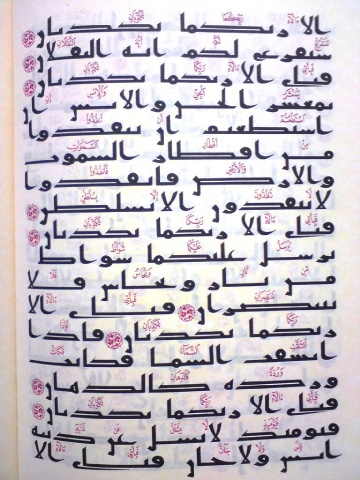 الا ربكما تكذبان
سنفرغ لكم ايه الثقلان
فباي الا ربكما تكذبان
يمعشر الجن والانس ان
استطعتم ان تنفذوا
من اقطار السموت
والارض فانفذوا
لا تنفذون الا بسلطن
فباي الا ربكما تكذبان
يرسل عليكما شواظ
من نار ونحاس فلا
تنتصران فباي الا
ربكما تكذبان فاذا
انشقت السما فكانت
وردة كالدهان
فباي الا ربكما تكذبان
فيومئذ لا يسئل عن ذنبه
انس ولا جان فباي الا